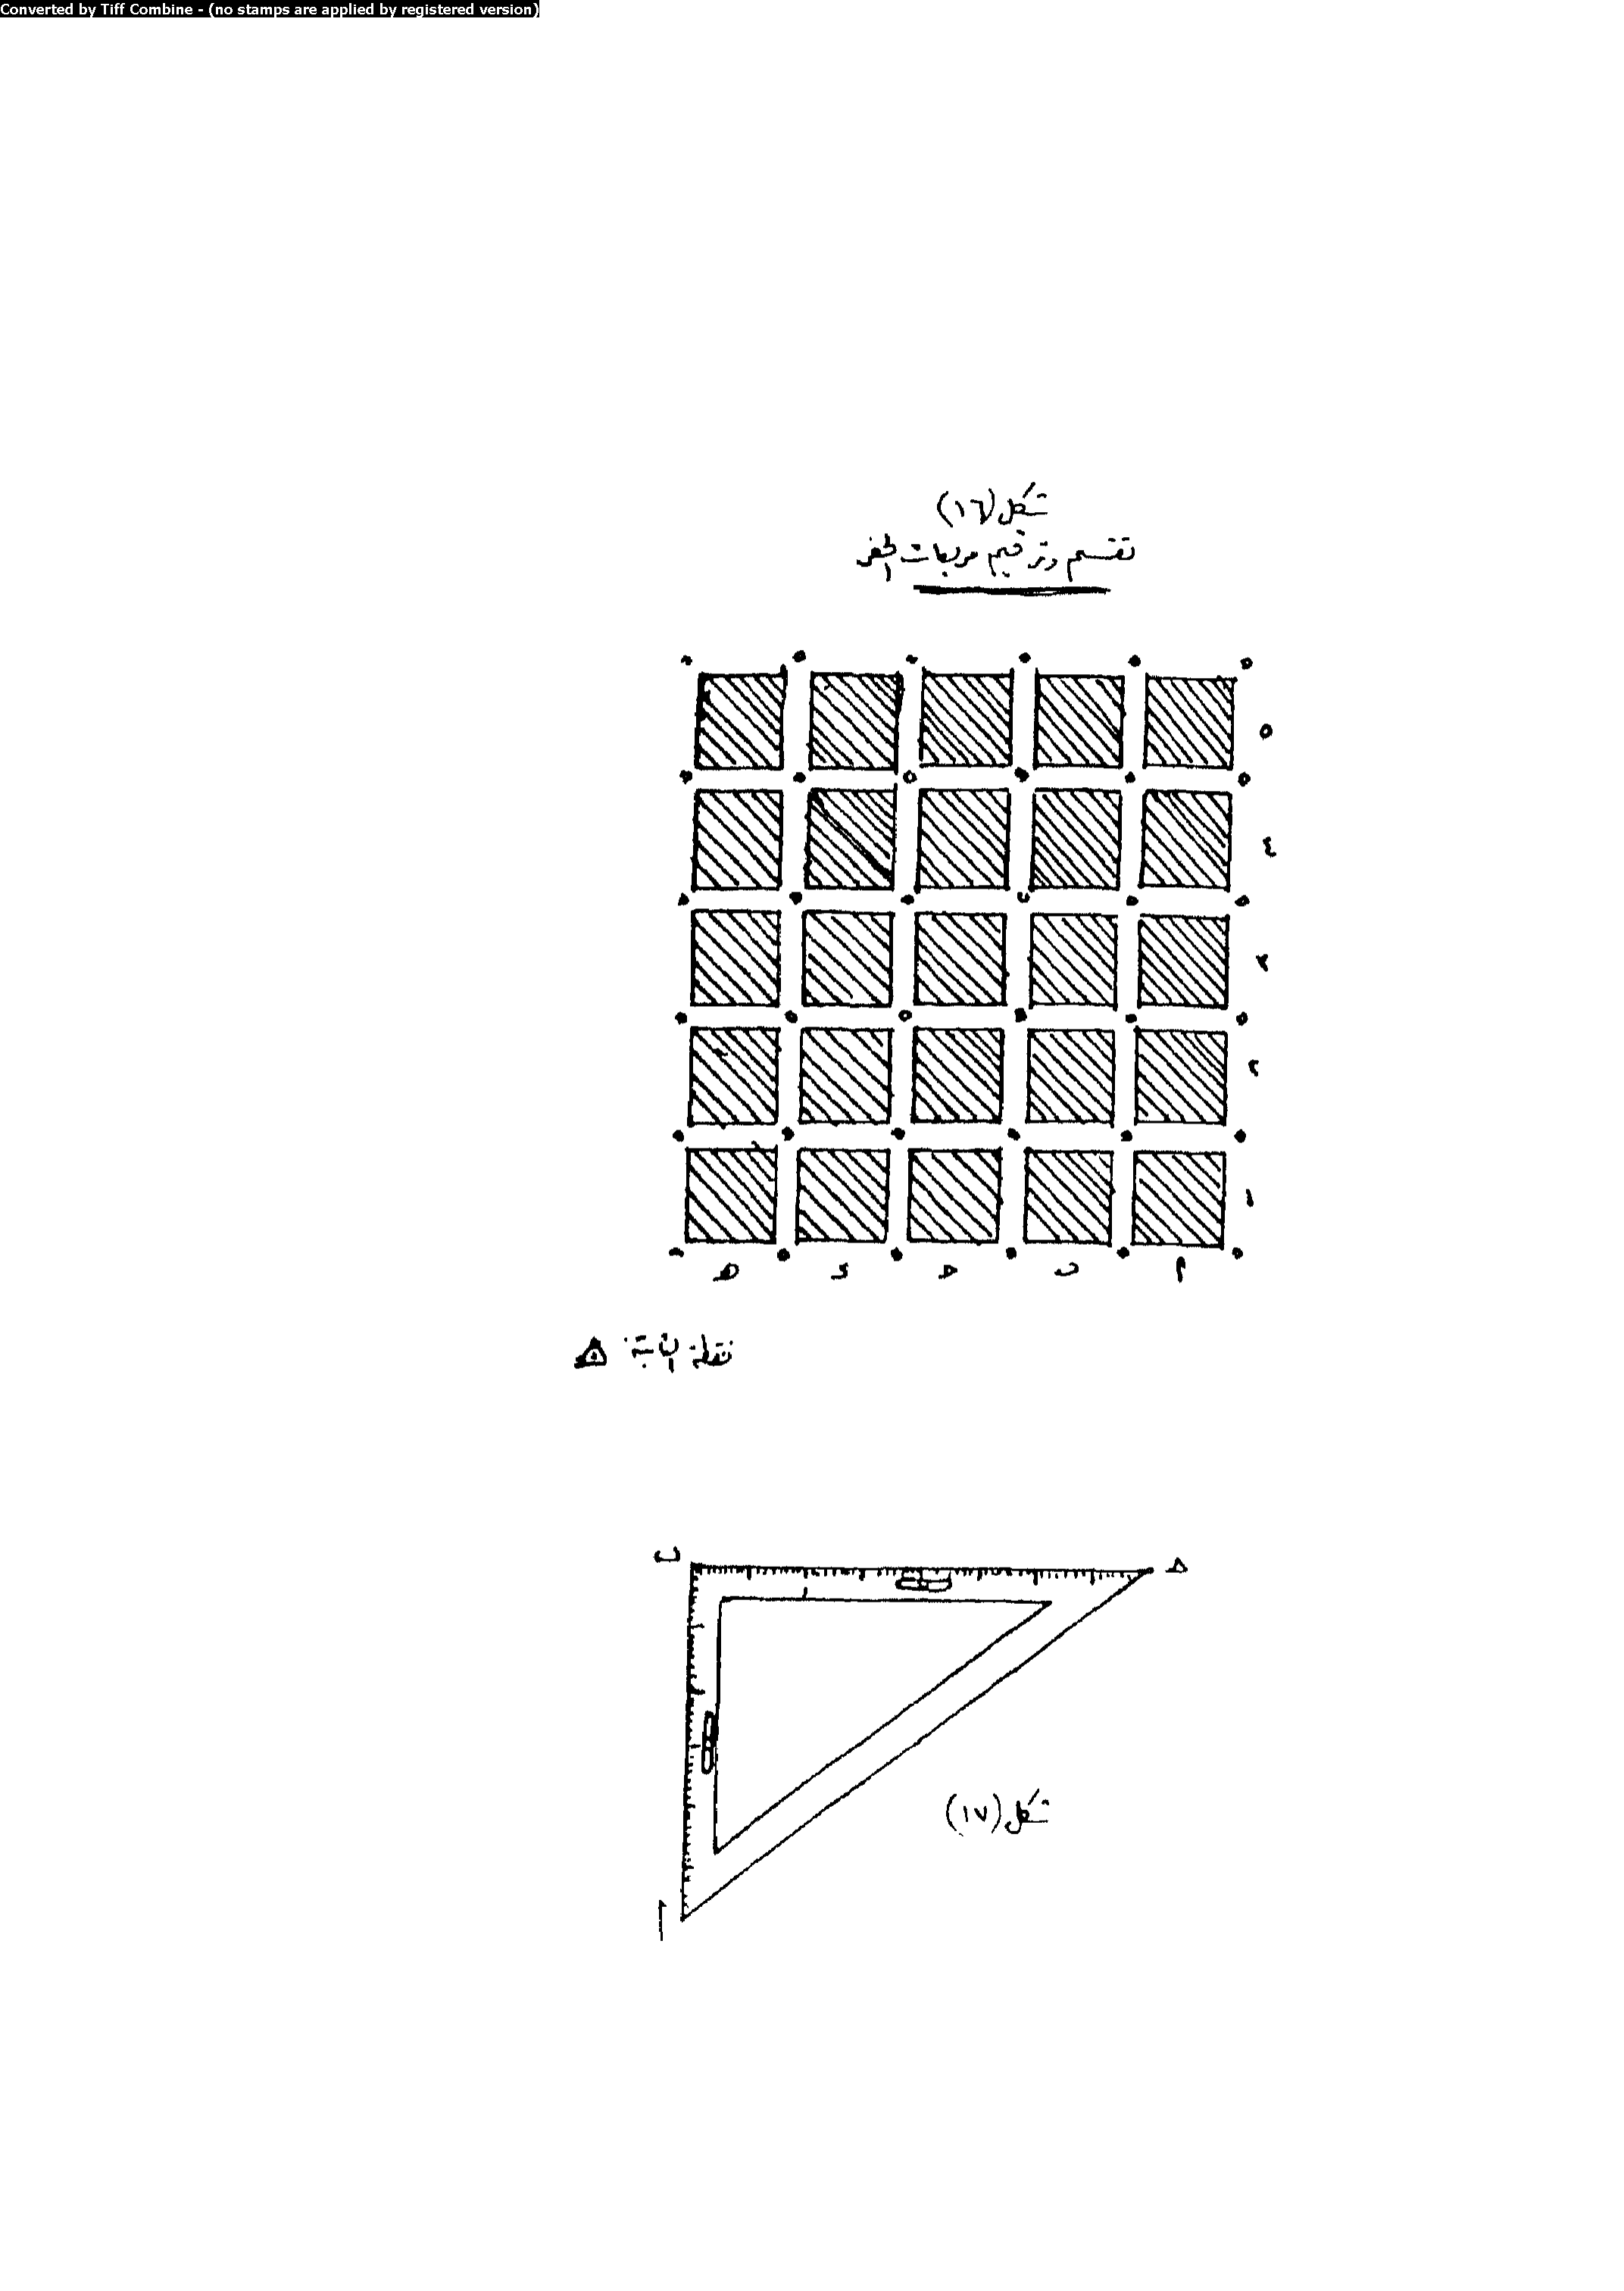 Converted by Tiff Combine - (no stamps are applied by registered version)
شكل (١٦)
تقسيم وترقيم مربعات الحفر
٥
٤
٣
٢
١
أ ب ج د هـ
نقطة ثابتة
ب ج
شكل (١٧)
أ